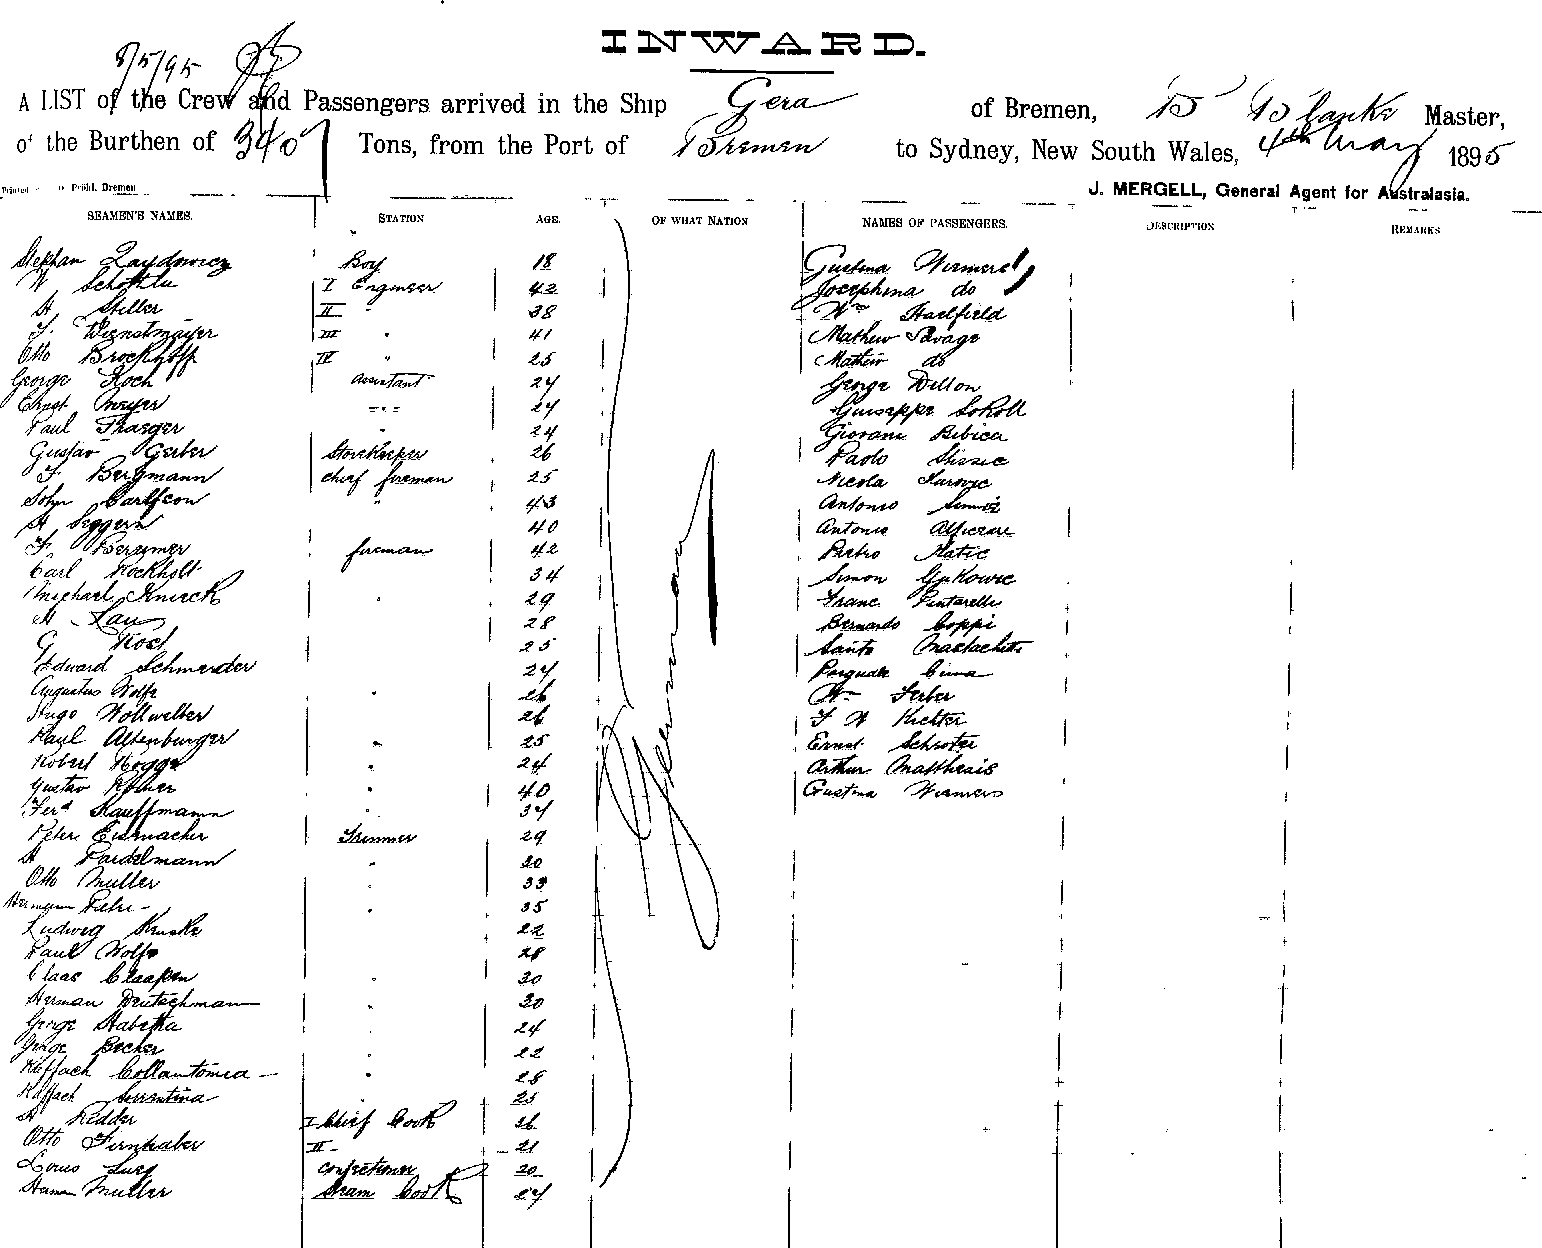 INWARD.
8/5/95
A LIST of the Crew and Passengers arrived in the Ship Gera of Bremen, B Blanke Master,
of the Burthen of 340 Tons, from the Port of Bremen to Sydney, New South Wales, 4th May 1895
Printed Bremen
J. MERGELL, General Agent for Australasia.
SEAMEN'S NAMES. STATION AGE. OF WHAT NATION NAMES OF PASSENGERS. DESCRIPTION REMARKS
Stephan Boy 18 Gustina Wermers
W I Engineer 42 Josephina do
H Stiller II " 38 Wm Hadfield
F. Dienstmayer III " 41 Mathew Savage
Otto Brockhoff IV " 25 Mathew do
George Koch Assistant 24 George Dillon
Ernst Meyer 24 Guiseppe Sokoll
Paul Praeger 24 Giovani Bibica
Gustav Gerber Storekeeper 26 Paolo
F Bergmann chief fireman 25 Nicola
John Carlfson " 43 Antonio
H Seggern 40 Antonio
F fireman 42 Pietro Matic
Carl Kockholt 34 Simon
Michael Knirck 29 Franc Pintarelli
H Lau 28 Bernardo Coppi
G Kost 25 Santo
Edward Schmeider 24 Pasquale Cima
Augustus Wolfe 26 Wm Ferber
Hugo Vollweiler 26 F W Richter
Karl Altenburger 25 Ernst Schroter
Robert Hogge 24 Arthur Matthrais
Gustav 40 Gustina Wermers
Ferd Kauffmann 34
German
Peter Eismacher Trimmer 29
H Pardelmann 20
Otto Muller 33
Hermann 35
Ludwig Kruske 22
Paul Wolfe 28
Claas Claassen 30
Herman Deutschmann 30
George 24
George Becker 22
Raffach Collantonica 28
Raffach Sorrentina 25
H Redder I Chief Cook 26
Otto Firnhaber II 21
Louis confectioner 20
Herman Muller Steam Cook 24